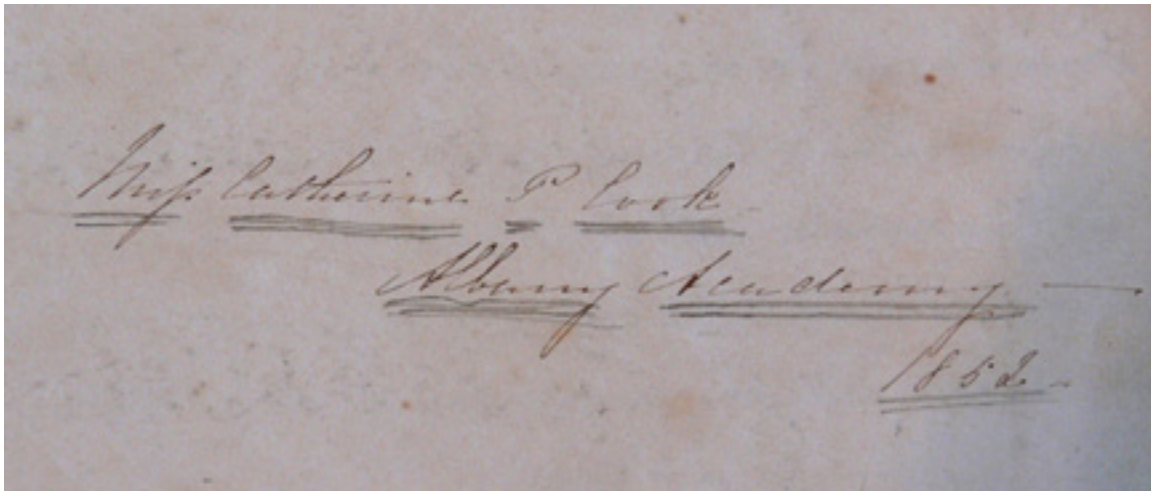 Miss Catherine P Cook
Albany Academy —
1852